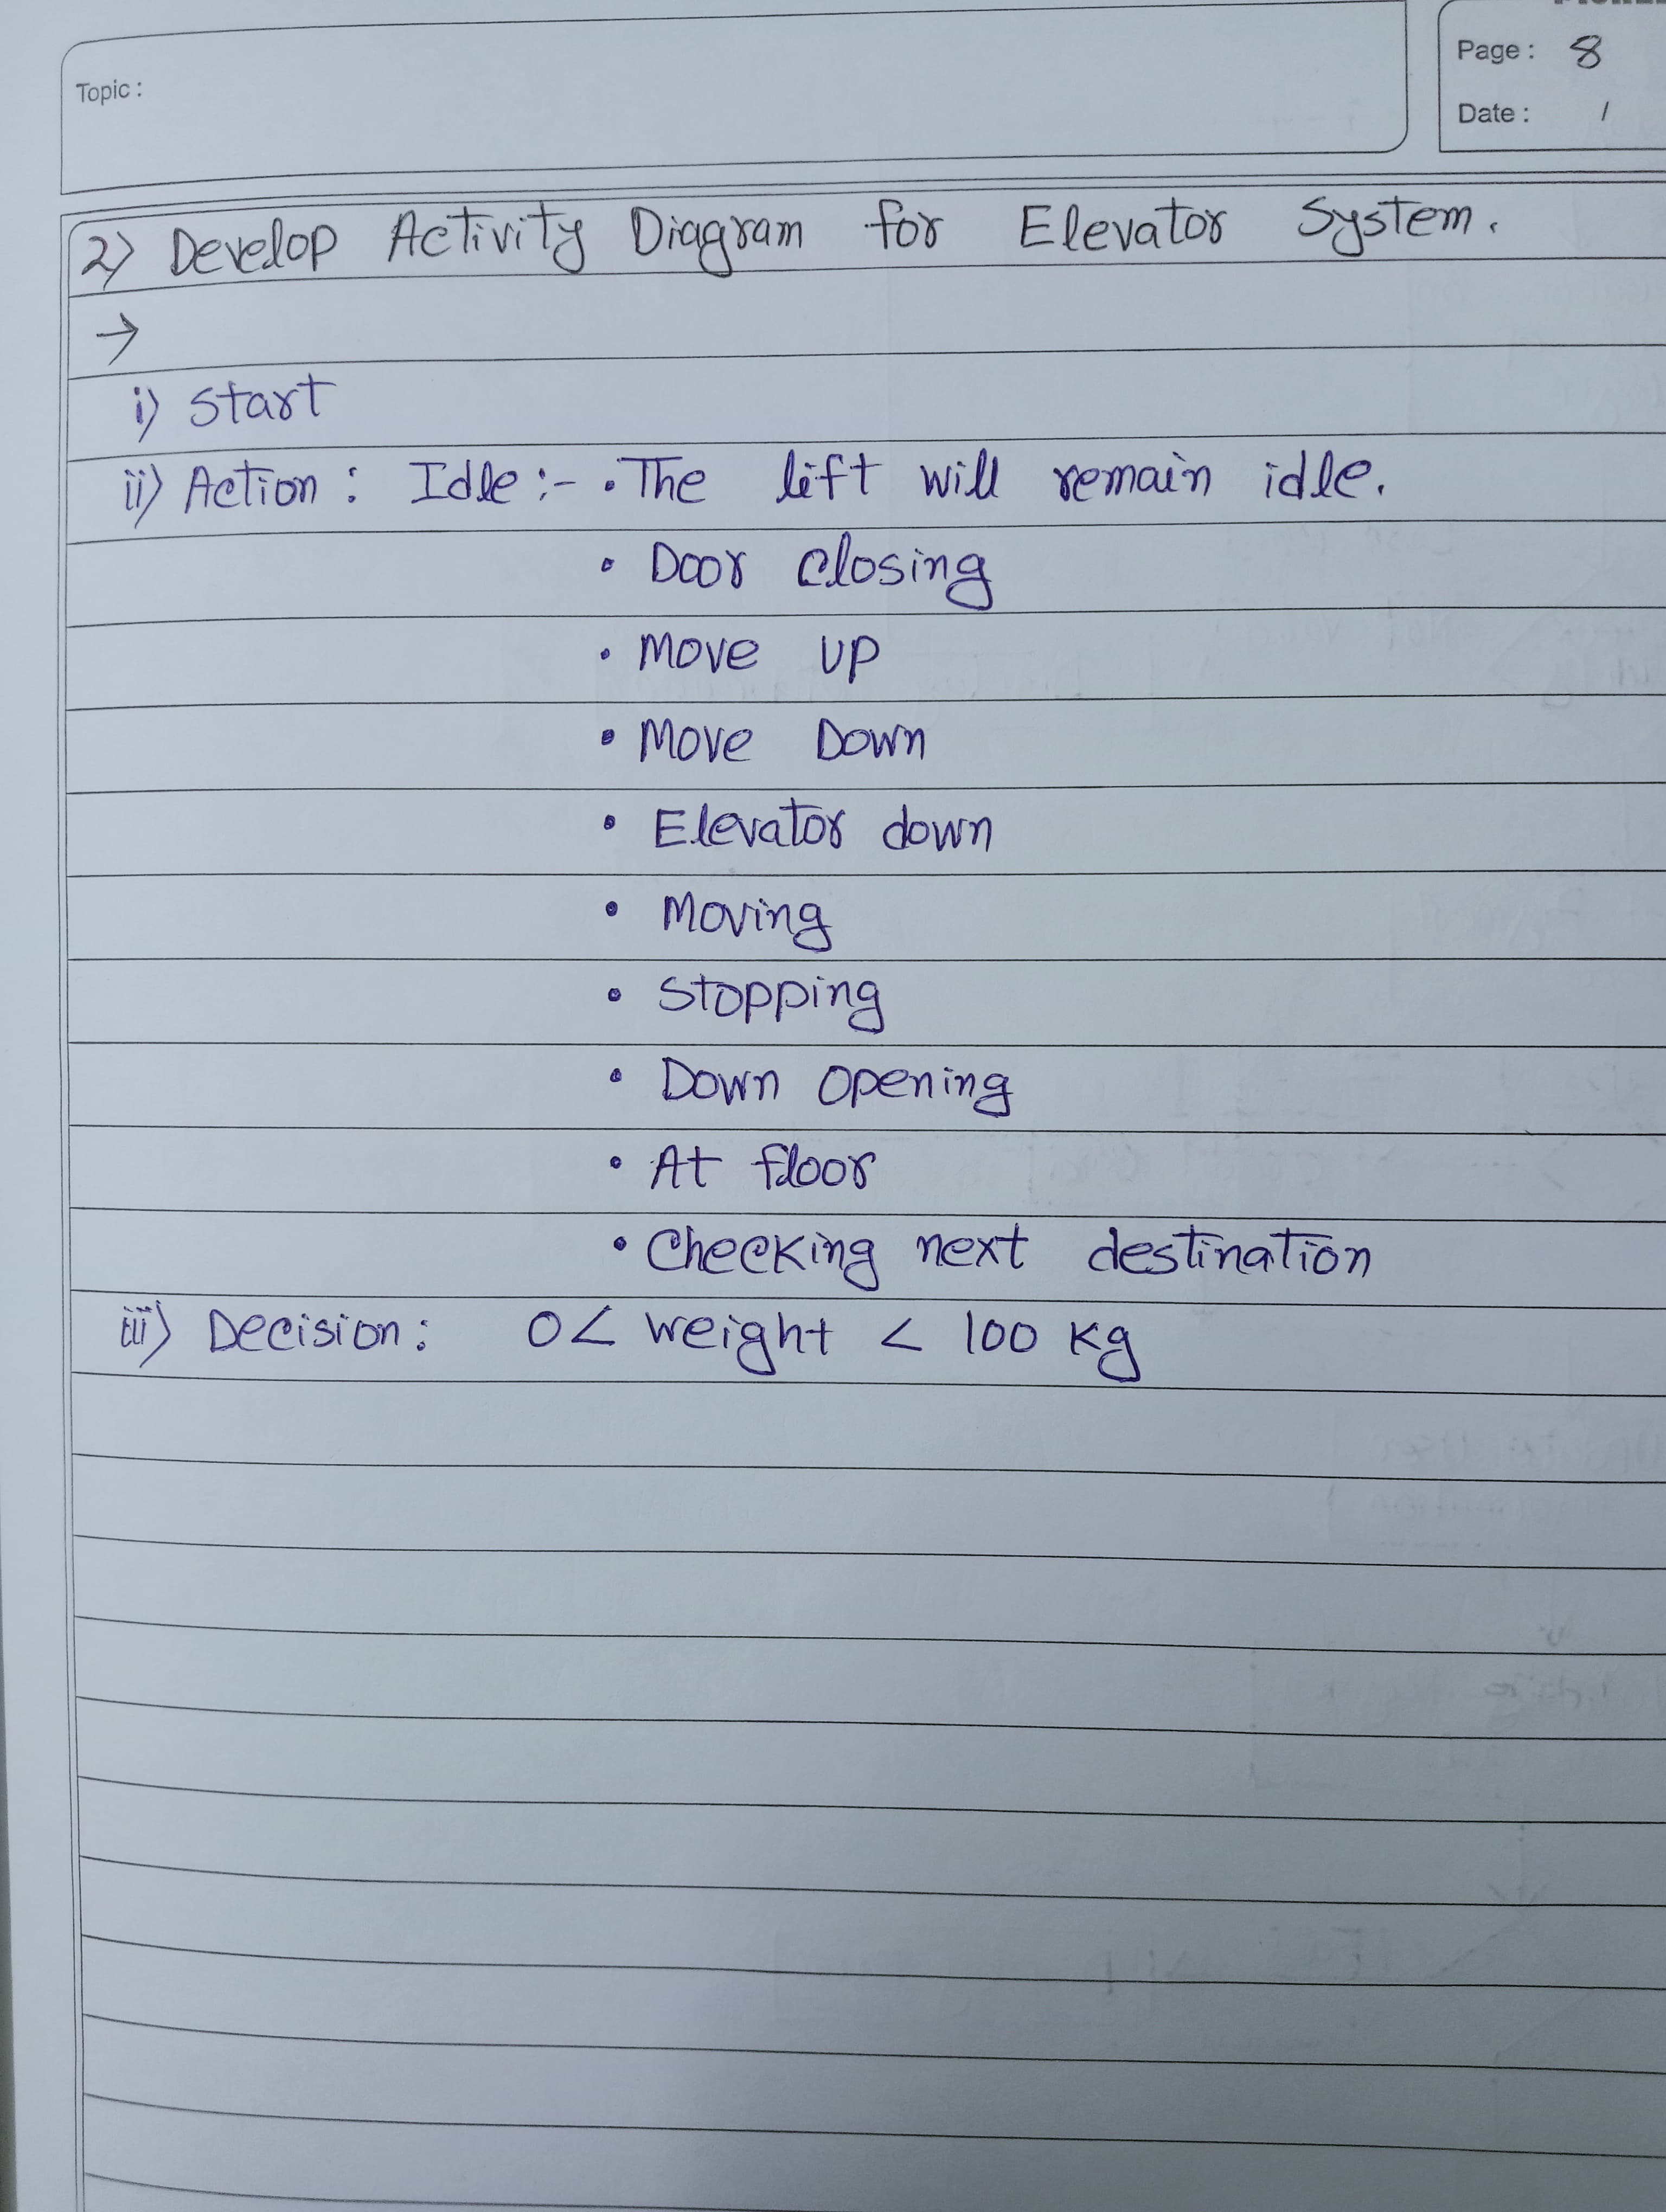 Topic :
Page : 8
Date : /
2) Develop Activity Diagram for Elevator System.
→
i) Start
ii) Action : Idle :- • The lift will remain idle.
• Door closing
• Move up
• Move Down
• Elevator down
• Moving
• Stopping
• Down opening
• At floor
• Checking next destination
iii) Decision : 0 < weight < 100 kg